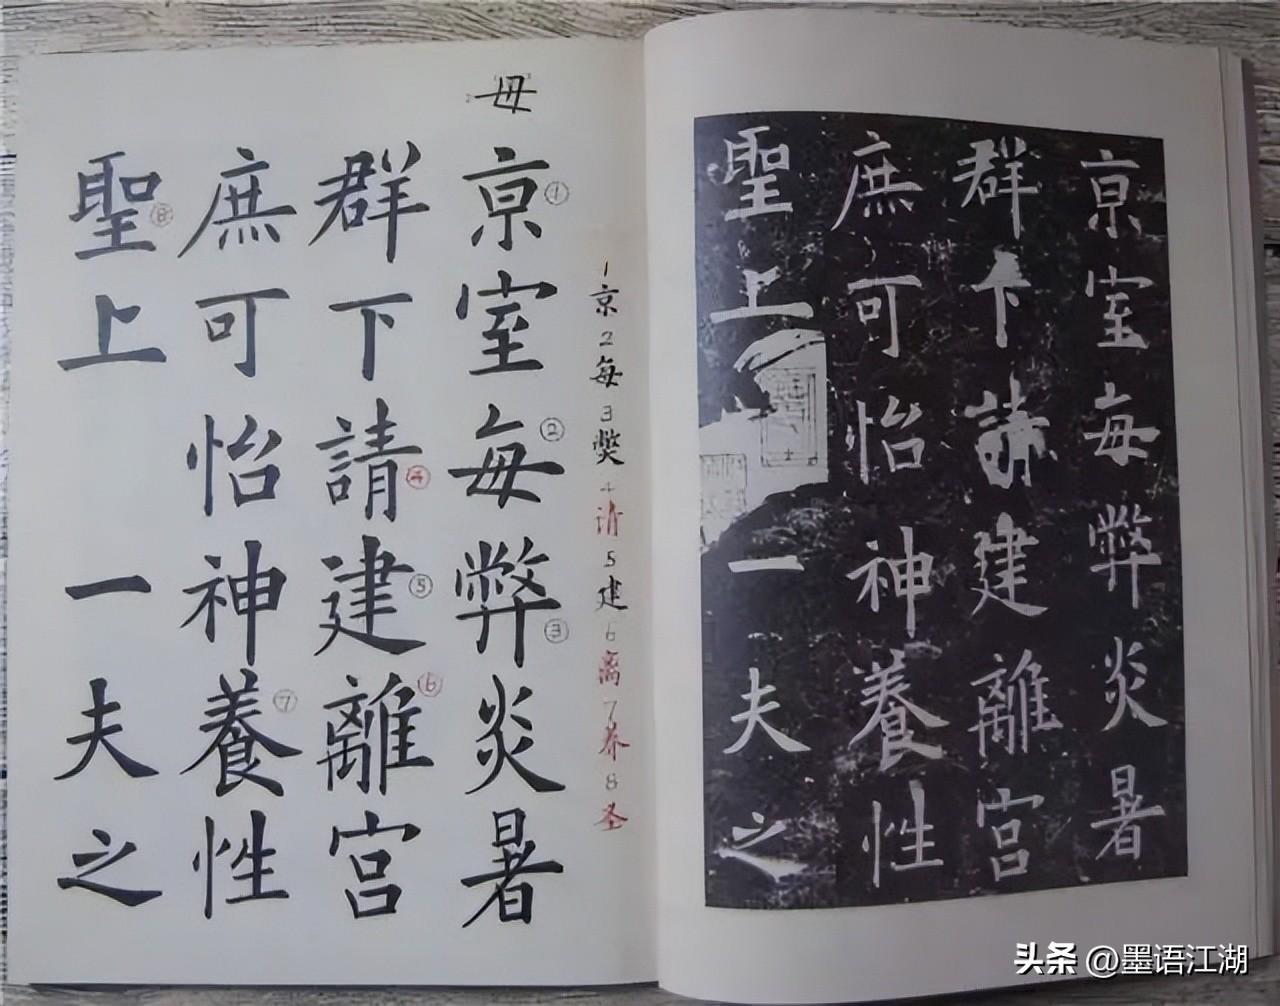 亰室每弊炎暑
群下請建離宮
庶可怡神養性
聖上一夫之
1京2每3獘4请5建6离7养8圣
毋
亰①室每②弊③炎暑
群下請④建⑤離⑥宮
庶可怡神養⑦性
聖⑧上一夫之
头条 @墨语江湖